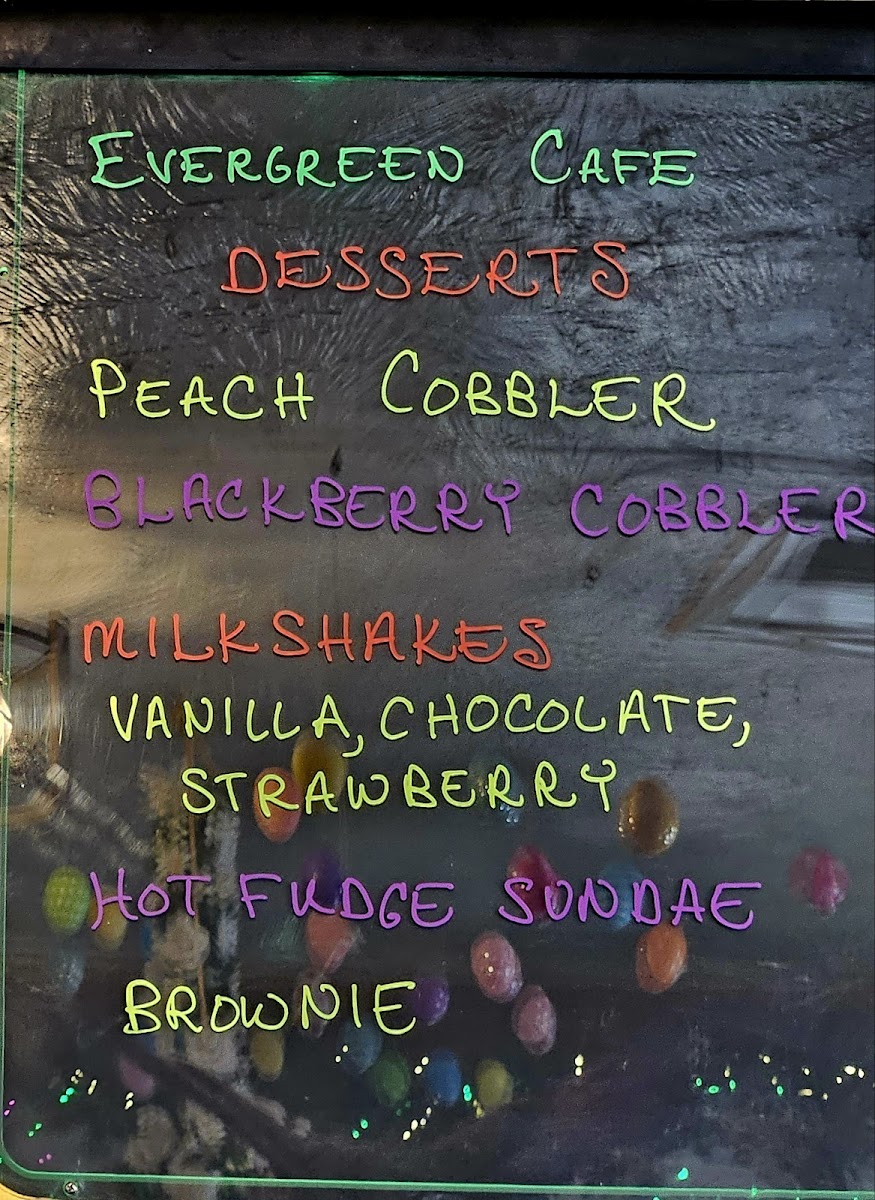 EVERGREEN CAFE
DESSERTS
PEACH COBBLER
BLACKBERRY COBBLER
MILKSHAKES
VANILLA, CHOCOLATE,
STRAWBERRY
HOT FUDGE SUNDAE
BROWNIE